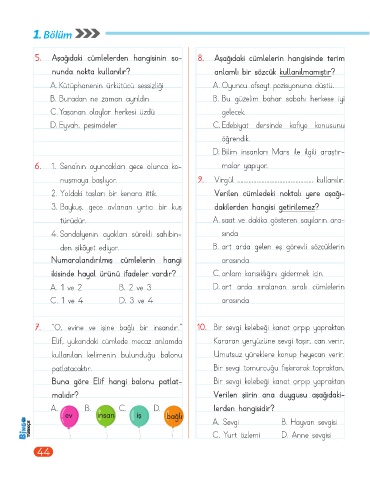 1. Bölüm
5. Aşağıdaki cümlelerden hangisinin so-
nunda nokta kullanılır?
A. Kütüphanenin ürkütücü sessizliği
B. Buradan ne zaman ayrıldın
C. Yaşanan olaylar herkesi üzdü
D. Eyvah, peşimdeler
6. 1. Sena'nın oyuncakları gece olunca ko-
nuşmaya başlıyor.
2. Yoldaki taşları bir kenara ittik.
3. Baykuş, gece avlanan yırtıcı bir kuş
türüdür.
4. Sandalyenin ayakları sürekli sahibin-
den şikâyet ediyor.
Numaralandırılmış cümlelerin hangi
ikisinde hayal ürünü ifadeler vardır?
A. 1 ve 2
B. 2 ve 3
C. 1 ve 4
D. 3 ve 4
7. "O, evine ve işine bağlı bir insandır."
Elif, yukarıdaki cümlede mecaz anlamda
kullanılan kelimenin bulunduğu balonu
patlatacaktır.
Buna göre Elif hangi balonu patlat-
malıdır?
A. ev
B. insan
C. iş
D. bağlı
8. Aşağıdaki cümlelerin hangisinde terim
anlamlı bir sözcük kullanılmamıştır?
A. Oyuncu ofsayt pozisyonuna düştü.
B. Bu güzelim bahar sabahı herkese iyi
gelecek.
C. Edebiyat dersinde kafiye konusunu
öğrendik.
D. Bilim insanları Mars ile ilgili araştır-
malar yapıyor.
9. Virgül ........................................ kullanılır.
Verilen cümledeki noktalı yere aşağı-
dakilerden hangisi getirilemez?
A. saat ve dakika gösteren sayıların ara-
sında
B. art arda gelen eş görevli sözcüklerin
arasında
C. anlam karışıklığını gidermek için
D. art arda sıralanan sıralı cümlelerin
arasında
10. Bir sevgi kelebeği kanat çırpıp yapraktan
Kararan yeryüzüne sevgi taşır, can verir,
Umutsuz yüreklere konup heyecan verir.
Bir sevgi tomurcuğu fışkırarak topraktan,
Bir sevgi kelebeği kanat çırpıp yapraktan
Verilen şiirin ana duygusu aşağıdaki-
lerden hangisidir?
A. Sevgi
B. Hayvan sevgisi
C. Yurt özlemi
D. Anne sevgisi
44